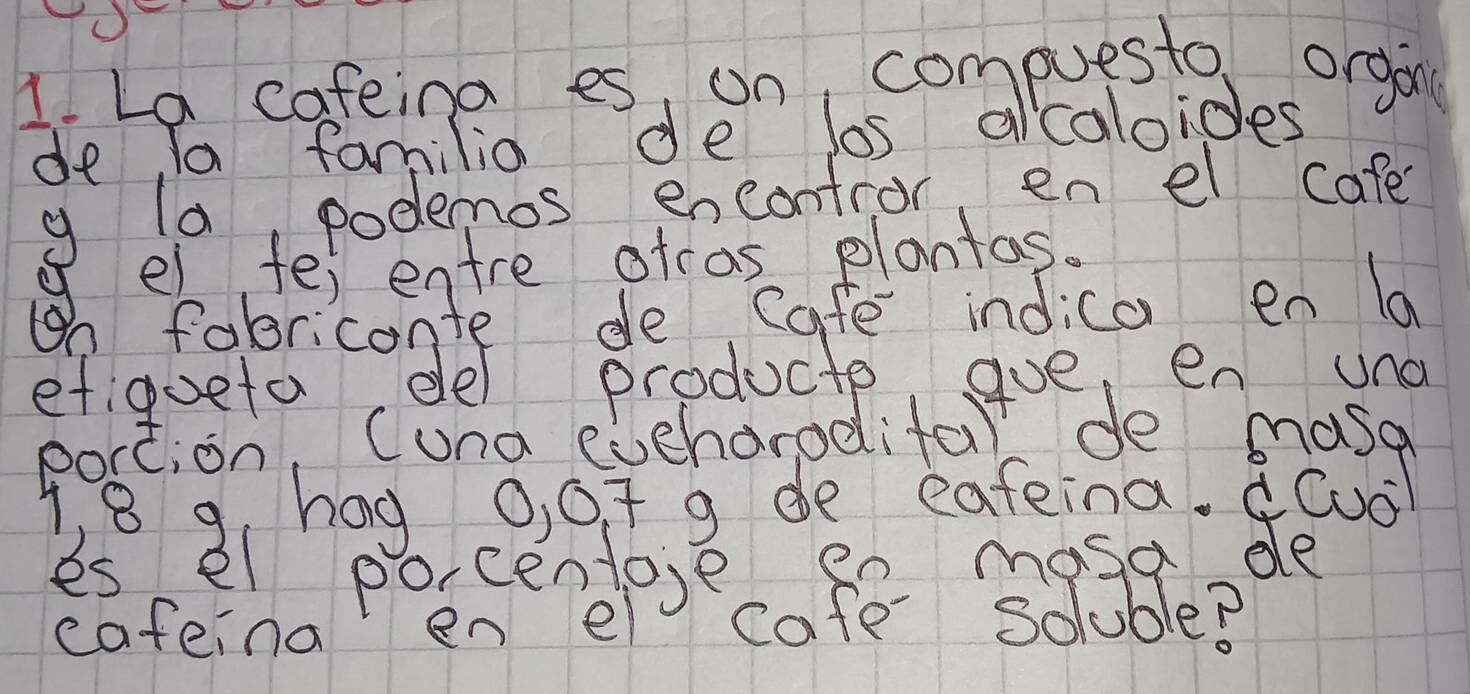 1. La cafeina es un compuesto orgánic
de la familia de los alcaloides
y la podemos encontrar en el café
y el te, entre otras plantas.
Un fabricante de café indica en la
etiqueta del producto que, en una
porción, (una cucharadita) de masa
1,8 g, hay 0,07 g de cafeina. ¿Cuál
es el porcentaje en masa de
cafeina en el café soluble?